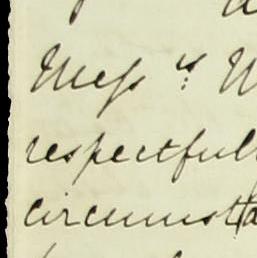 Mess rs W
respectful
circumsta